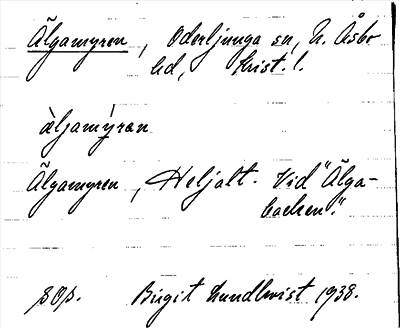 Älgamyren, Oderljunga sn, N. Åsbo
hd, Krist. l.
äljamýrɐn
Älgamyren, Heljalt. Vid "Älga-
backen".
SOS. Birgit Lundkvist 1938.